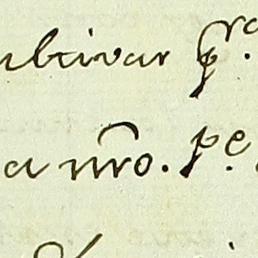 ultivar pra.
a nro. pe.